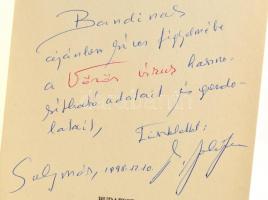 Bandinak
ajánlom szíves figyelmébe
a Vörös vírus haszno-
sítható adatait és gondo-
latait,
Tisztelettel:
Solymár, 1990.12.10.